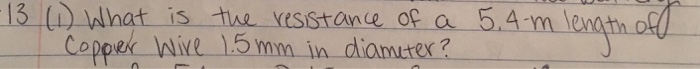 13 (1) What is the resistance of a 5.4-m length of
Copper Wire 1.5mm in diameter?